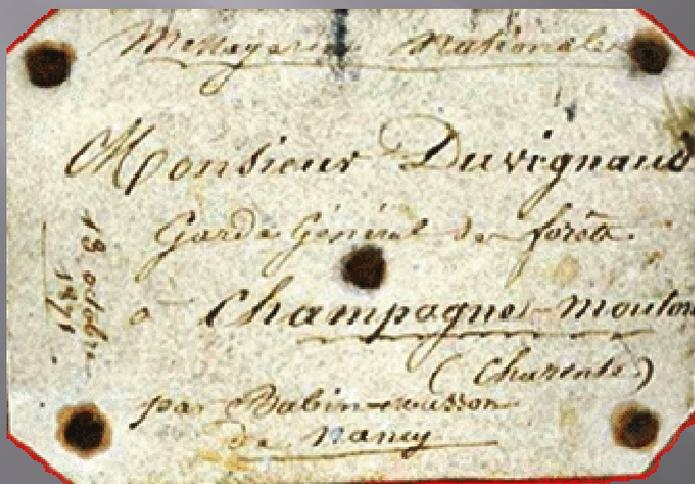 Messageries Nationales
Monsieur Duvignaud
Garde Général des forêts
à Champagne-mouton
(Charente)
par
de Nancy
13 octobre
1871